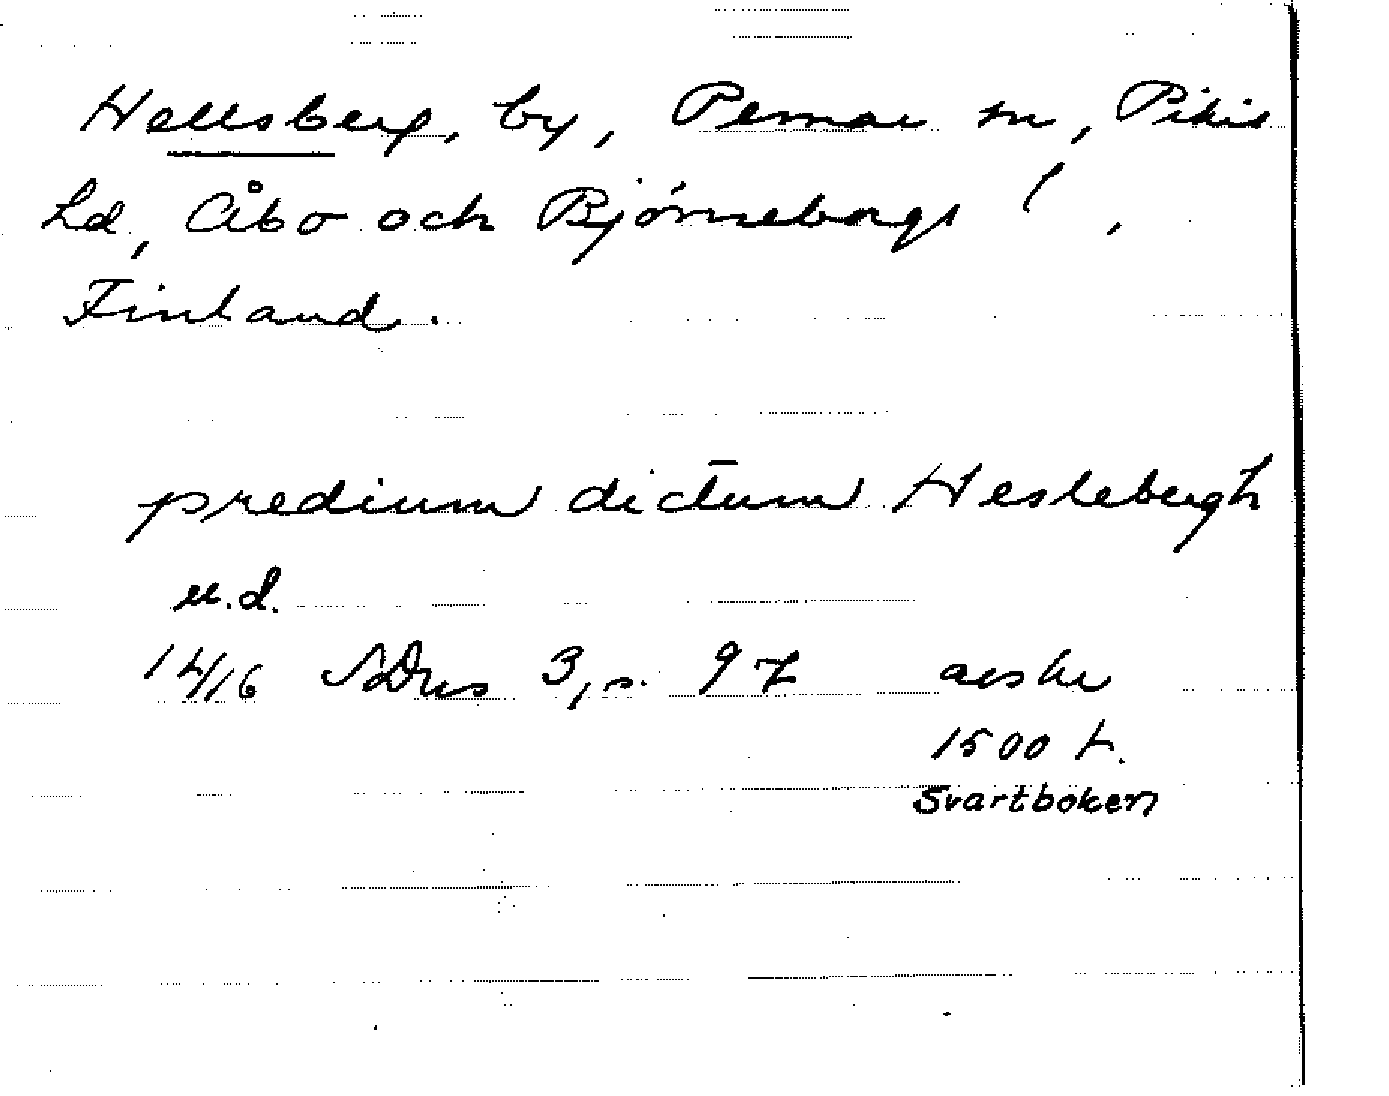 Hellsberg, by, Pemar sn, Pikis
hd, Åbo och Björneborgs l,
Finland.
predium dictum Heslebergh
u.d.
14/16 SDns 3, s. 97 avskr
1500 t.
Svartboken